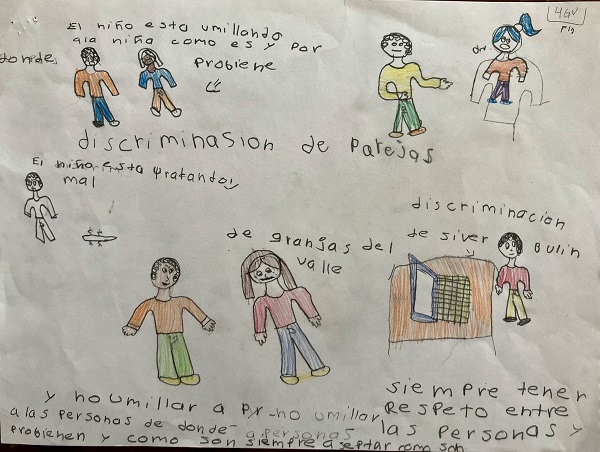 4GV
El niño esta umillando
ala niña como es y por
donde
probiene
discriminasion de parejas
El niño esta tratando
mal
discriminacion
de siver Bulin
de granjas del
valle
y no umillar a no umillar
a las personas de donde a personas
probienen y como son siempre aseptar como son
siempre tener
Respeto entre
las personas y